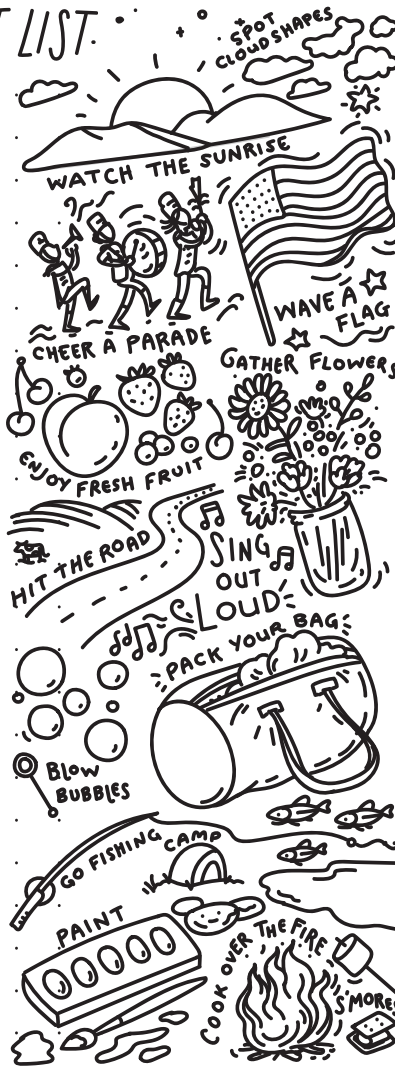 LIST.
SPOT
CLOUD SHAPES
WATCH THE SUNRISE
WAVE A
FLAG
CHEER A PARADE
GATHER FLOWERS
ENJOY FRESH FRUIT
HIT THE ROAD
SING
OUT
LOUD
PACK YOUR BAG
BLOW
BUBBLES
GO FISHING
CAMP
PAINT
COOK OVER THE FIRE
S'MORES